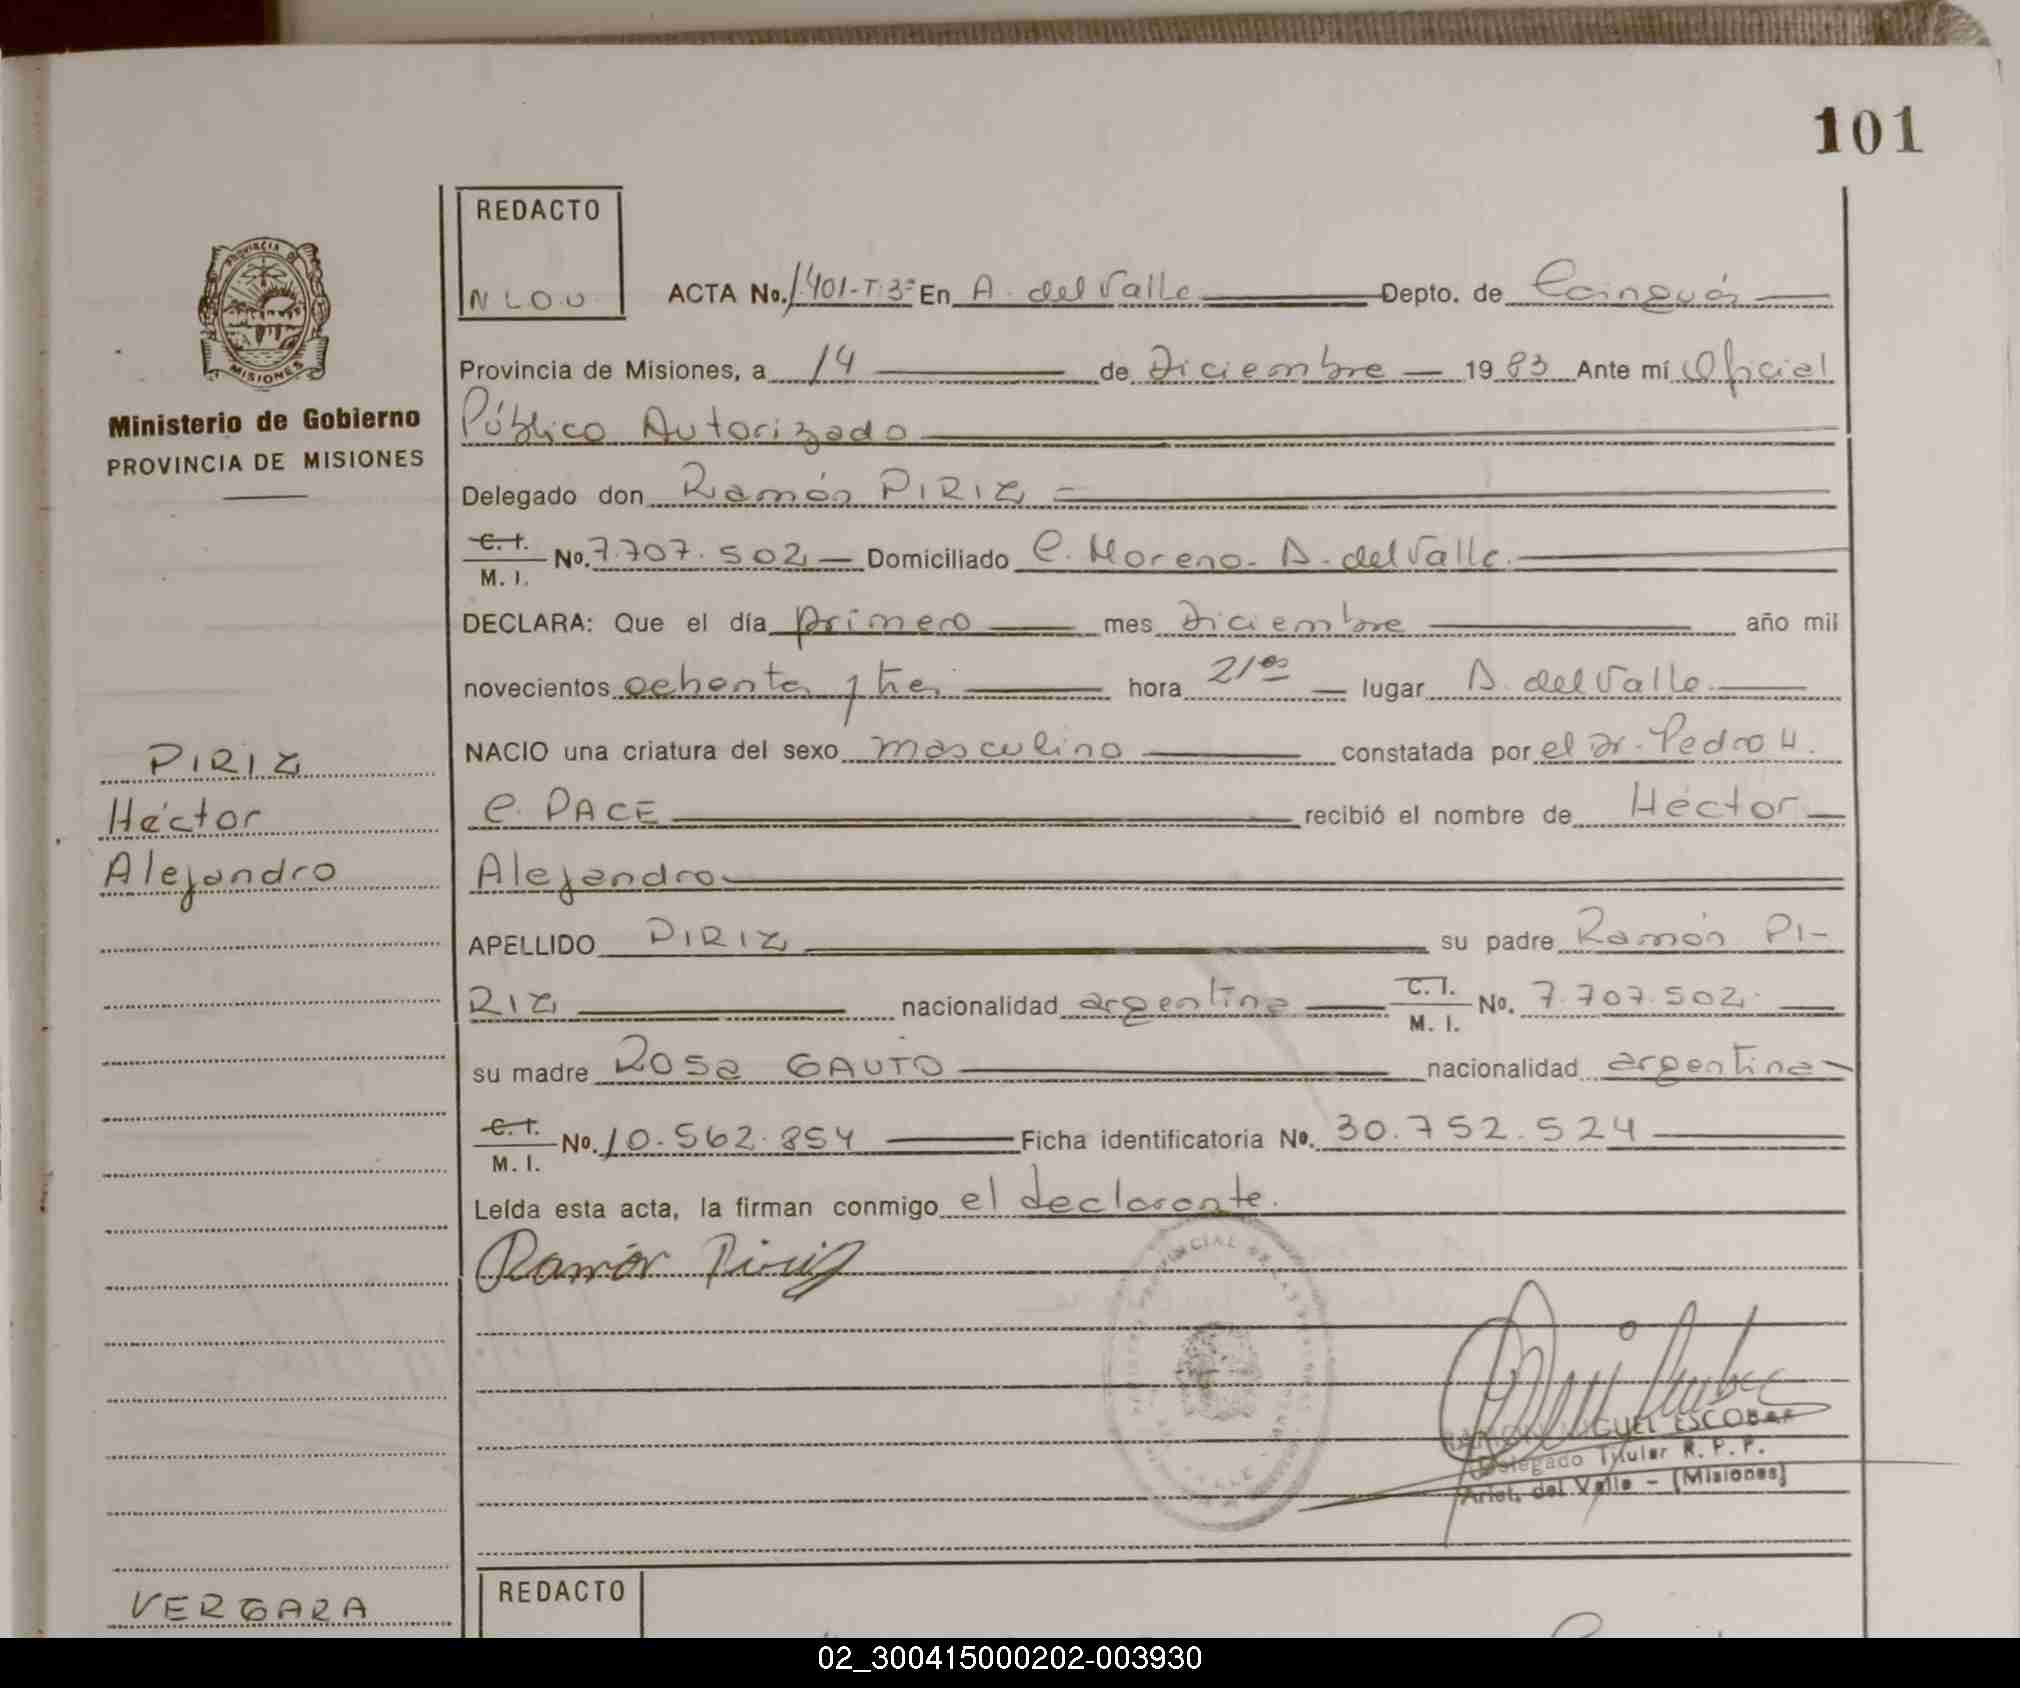 101
REDACTO
NLOU
ACTA No. 1.401-T.3º En A. del Valle Depto. de Cainguás
Provincia de Misiones, a 14 de Diciembre 1983 Ante mí Oficial
Público Autorizado
Delegado don Ramón PIRIZ
C. I. M. I. No. 7.707.502 Domiciliado C. Moreno - A. del Valle
DECLARA: Que el día primero mes Diciembre año mil
novecientos ochenta y tres hora 21 00 lugar A. del Valle
NACIO una criatura del sexo masculino constatada por el Dr. Pedro H.
C. PACE recibió el nombre de Héctor
Alejandro
APELLIDO PIRIZ su padre Ramón PI-
RIZ nacionalidad argentina C. I. M. I. No. 7.707.502
su madre Rosa GAUTO nacionalidad argentina
C. I. M. I. No. 10.562.854 Ficha identificatoria No. 30.752.524
Leída esta acta, la firman conmigo el declarante.
Ramón Piriz
MIGUEL ESCOBAR
Delegado Titular R. P. P.
Arist. del Valle - (Misiones)
PROVINCIA DE
MISIONES
Ministerio de Gobierno
PROVINCIA DE MISIONES
PIRIZ
Héctor
Alejandro
VERGARA
REDACTO
02_300415000202-003930